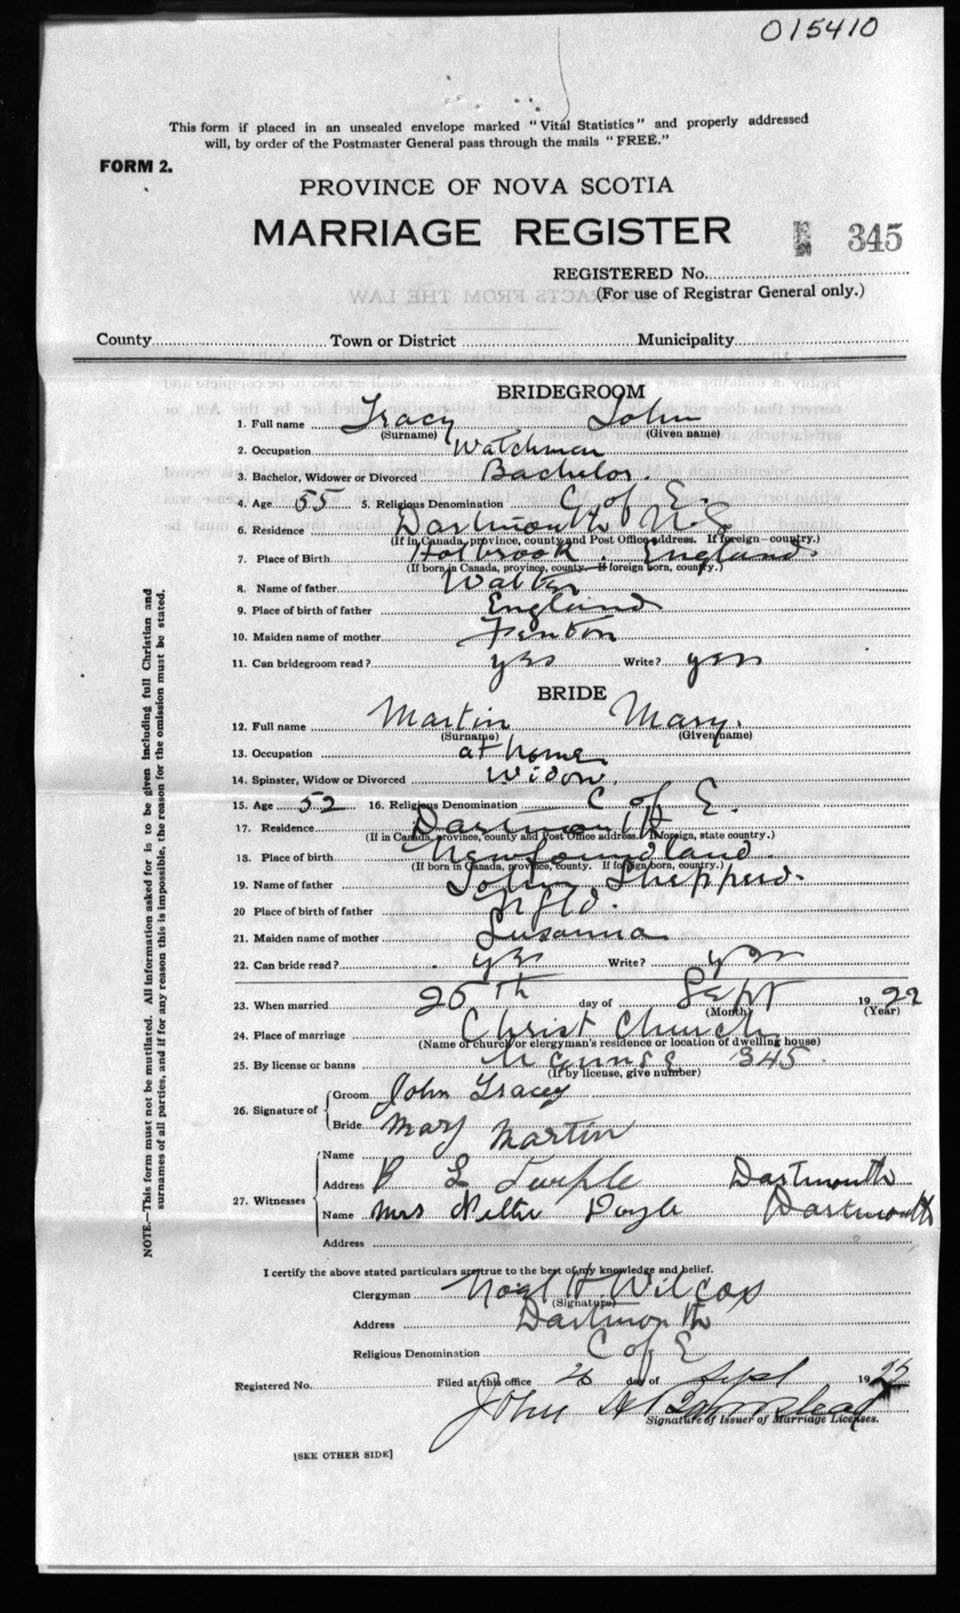 015410
This form if placed in an unsealed envelope marked "Vital Statistics" and properly addressed
will, by order of the Postmaster General pass through the mails "FREE."
FORM 2.
PROVINCE OF NOVA SCOTIA
MARRIAGE REGISTER 345
REGISTERED No.
(For use of Registrar General only.)
County Town or District Municipality
BRIDEGROOM
1. Full name Tracy John
(Surname) (Given name)
2. Occupation Watchman
3. Bachelor, Widower or Divorced Bachelor.
4. Age 55 5. Religious Denomination C of E.
6. Residence Dartmouth N.S.
(If in Canada, province, county and Post Office address. If foreign—country.)
7. Place of Birth Holbrook. England.
(If born in Canada, province, county. If foreign born, country.)
8. Name of father Walter
9. Place of birth of father England
10. Maiden name of mother Fenton
11. Can bridegroom read? yes Write? yes
BRIDE
12. Full name Martin Mary.
(Surname) (Given name)
13. Occupation at home
14. Spinster, Widow or Divorced Widow.
15. Age 52 16. Religious Denomination C of E.
17. Residence Dartmouth
(If in Canada, province, county and Post Office address. If foreign, state country.)
18. Place of birth Newfoundland.
(If born in Canada, province, county. If foreign born, country.)
19. Name of father John Shepperd.
20 Place of birth of father Nfld.
21. Maiden name of mother Susanna
22. Can bride read? yes Write? yes
23. When married 25th day of Sept 1922
(Month) (Year)
24. Place of marriage Christ Church
(Name of church or clergyman's residence or location of dwelling house)
25. By license or banns 345
(If by license, give number)
26. Signature of
Groom John Tracey
Bride Mary Martin
27. Witnesses
Name
Address Dartmouth
Name Mrs Doyle Dartmouth
Address
I certify the above stated particulars are true to the best of my knowledge and belief.
Clergyman Noel H. Wilcox
(Signature)
Address Dartmouth
Religious Denomination C of E
Registered No. Filed at this office 26 day of Sept 19
John
Signature of Issuer of Marriage Licenses.
[SEE OTHER SIDE]
NOTE.—This form must not be mutilated. All information asked for is to be given including full Christian and
surnames of all parties, and if for any reason this is impossible, the reason for the omission must be stated.